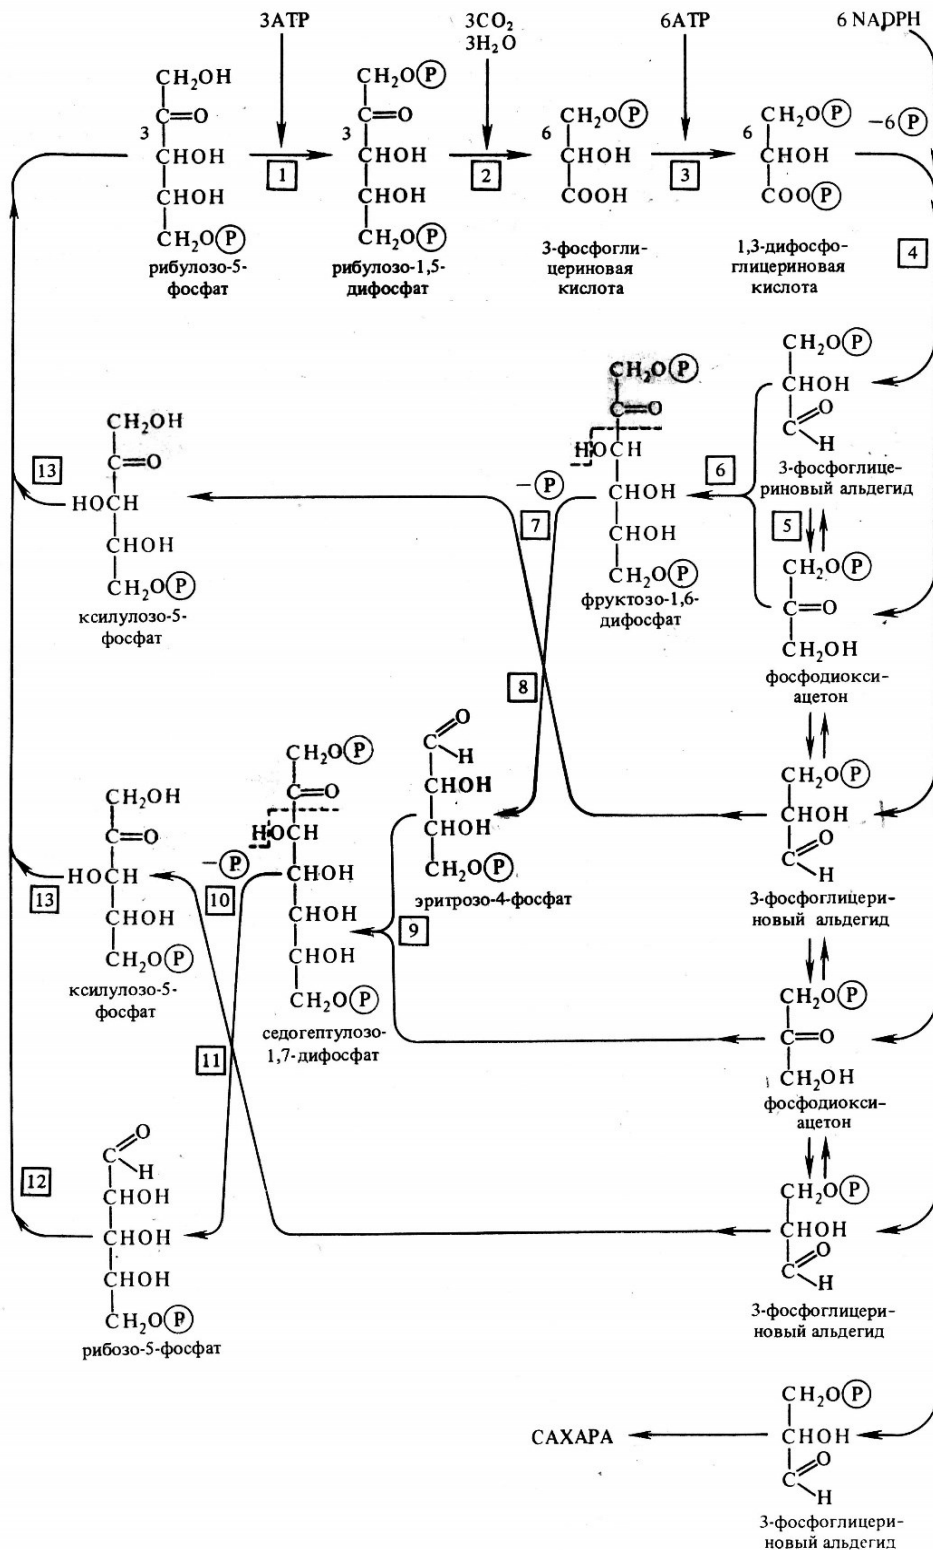 3ATP
3CO₂
3H₂O
6ATP
6 NADPH
CH₂OH
C=O
3
CHOH
CHOH
CH₂OⓅ
рибулозо-5-
фосфат
1
CH₂OⓅ
C=O
3
CHOH
CHOH
CH₂OⓅ
рибулозо-1,5-
дифосфат
2
CH₂OⓅ
6
CHOH
COOH
3-фосфогли-
цериновая
кислота
3
CH₂OⓅ
6
CHOH
COOⓅ
1,3-дифосфо-
глицериновая
кислота
−6Ⓟ
4
CH₂OⓅ
CHOH
C
O
H
3-фосфоглице-
риновый альдегид
5
CH₂OⓅ
C=O
CH₂OH
фосфодиокси-
ацетон
6
CH₂OⓅ
C=O
HOCH
CHOH
CHOH
CH₂OⓅ
фруктозо-1,6-
дифосфат
−Ⓟ
7
13
CH₂OH
C=O
HOCH
CHOH
CH₂OⓅ
ксилулозо-5-
фосфат
8
CH₂OⓅ
CHOH
C
O
H
3-фосфоглицери-
новый альдегид
O
C
H
CHOH
CHOH
CH₂OⓅ
эритрозо-4-фосфат
9
CH₂OⓅ
C=O
HOCH
CHOH
CHOH
CHOH
CH₂OⓅ
седогептулозо-
1,7-дифосфат
−Ⓟ
10
13
CH₂OH
C=O
HOCH
CHOH
CH₂OⓅ
ксилулозо-5-
фосфат
CH₂OⓅ
C=O
CH₂OH
фосфодиокси-
ацетон
11
12
O
C
H
CHOH
CHOH
CHOH
CH₂OⓅ
рибозо-5-фосфат
CH₂OⓅ
CHOH
C
O
H
3-фосфоглицери-
новый альдегид
САХАРА
CH₂OⓅ
CHOH
C
O
H
3-фосфоглицери-
новый альдегид